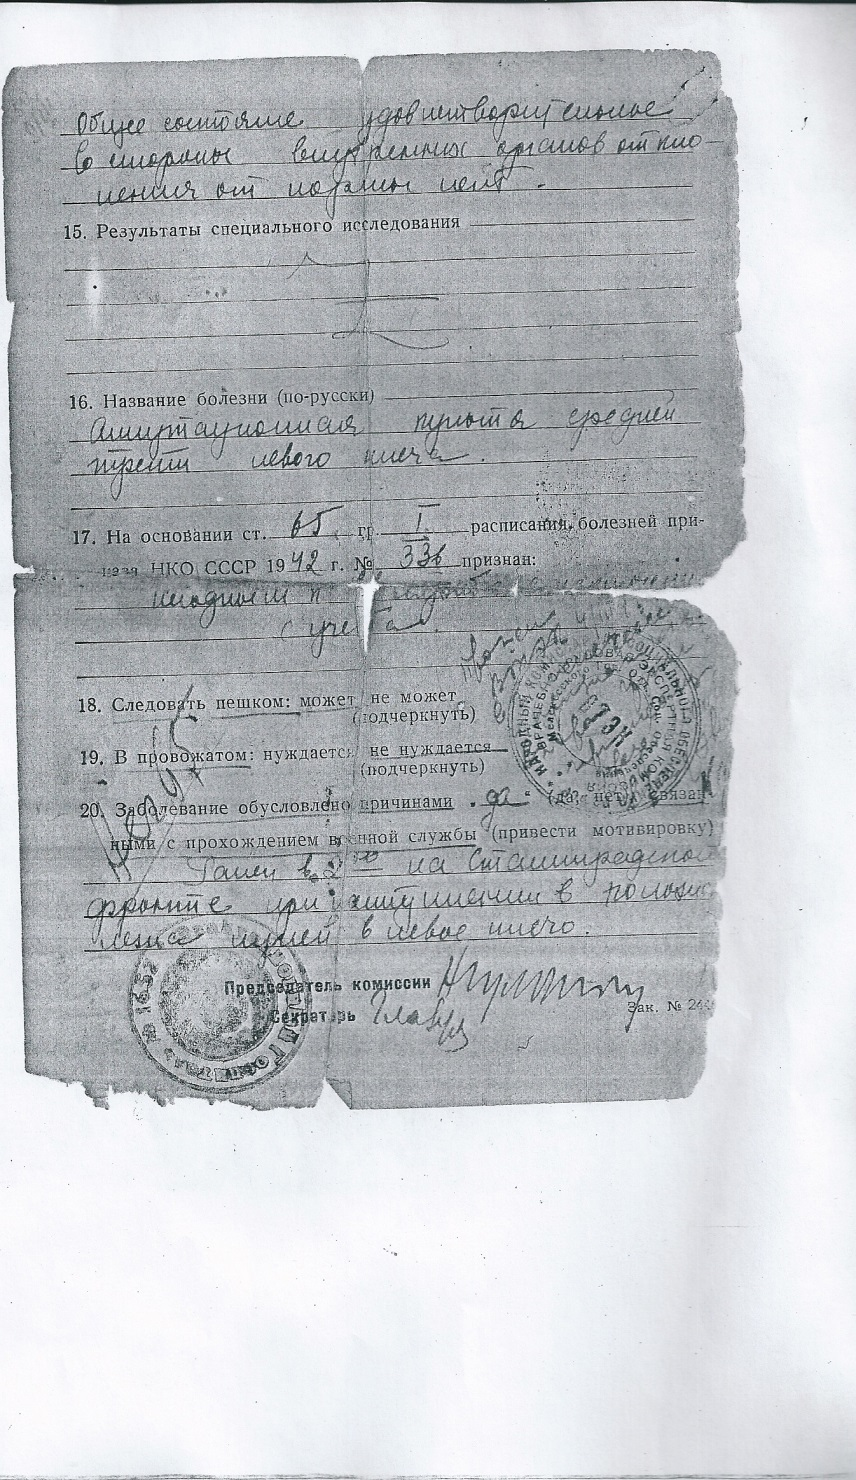 Общее состояние удовлетворительное
Со стороны внутренних органов откло-
нения от нормы нет.
15. Результаты специального исследования
16. Название болезни (по-русски)
Ампутационная культя средней
трети левого плеча.
17. На основании ст. 65 гр. I расписания болезней при-
каза НКО СССР 1942 г. № 336 признан:
негодным к с исключением
с учета
18. Следовать пешком: может не может
(подчеркнуть)
19. В провожатом: нуждается не нуждается
(подчеркнуть)
20. Заболевание обусловлено причинами "да" (да, нет) связан-
ными с прохождением военной службы (привести мотивировку)
Ранен в на Сталинградском
фронте при наступлении в
пулей в левое плечо.
Председатель комиссии
Секретарь
Зак. №
НАРОДНЫЙ КОМИССАРИАТ СОЦИАЛЬНОГО ОБЕСПЕЧЕНИЯ
ВРАЧЕБНО ЭКСПЕРТНАЯ КОМИССИЯ
ВТЭК
№ 1652